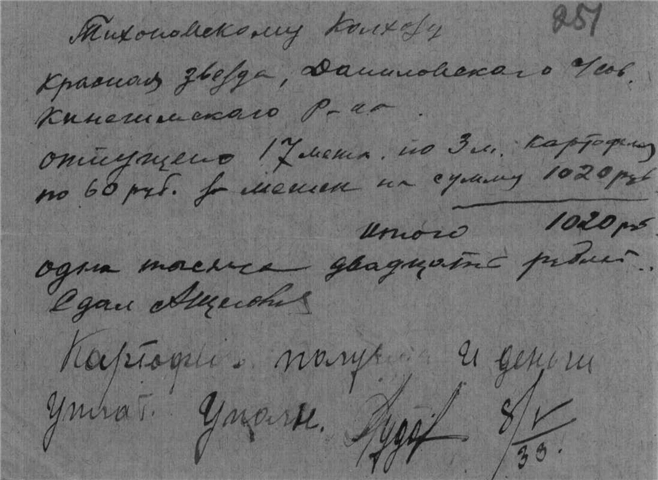 251
Тихоновскому Колхозу
Красная звезда, Даниловского с/сов.
Кинешемского Р-на
отпущено 17 меш. по 3 м. картофеля
по 60 руб. за мешок на сумму 1020 руб
итого 1020 руб.
одна тысяча двадцать рублей.
Сдал
Картофель получил и деньги
уплат. Уполн. 8/V
33.